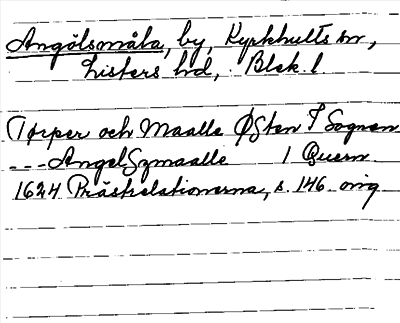 Angölsmåla, by, Kyrkhults sn,
Listers hd, Blek. l.
Torper och Maalle Østen I Sognen
--- AngelSzmaalle 1 Quern
1624 Prästrelationerna, s. 146 orig